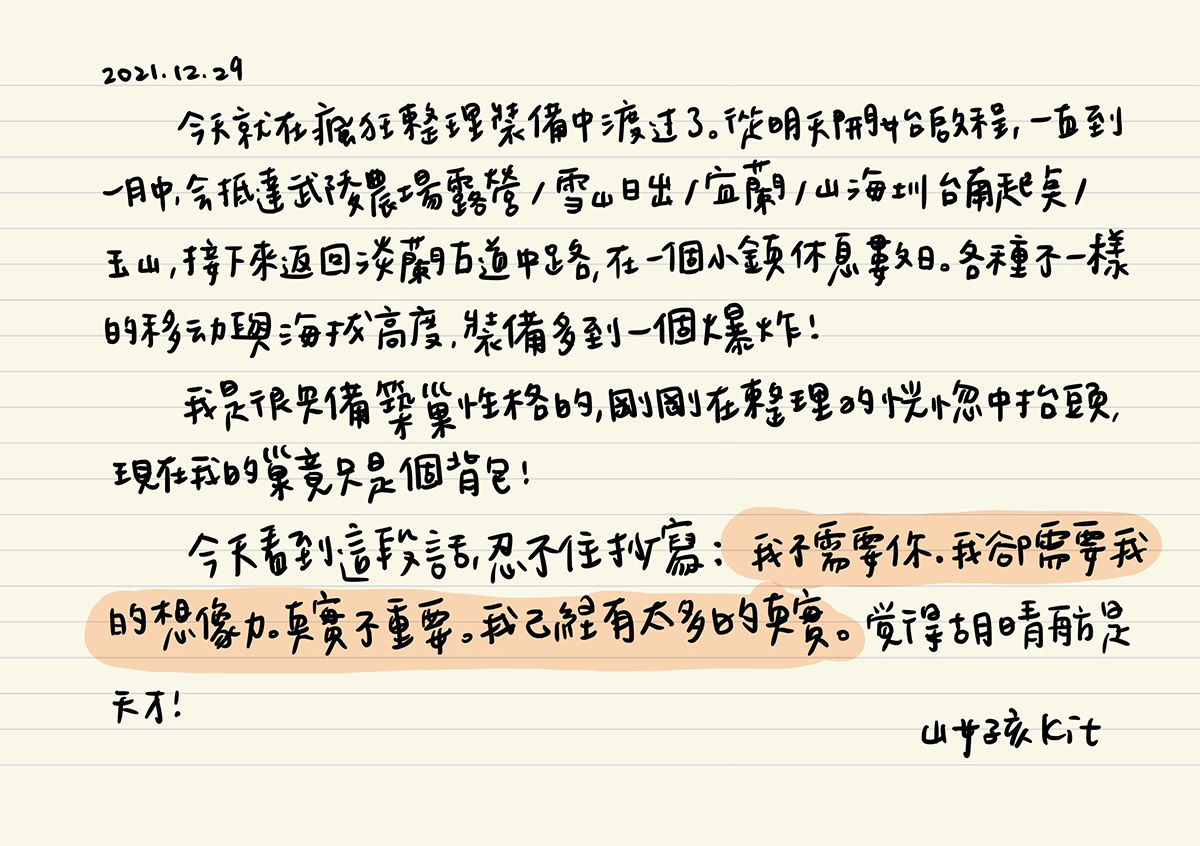 2021.12.29
今天就在瘋狂整理裝備中渡过了。從明天開始啟程,一直到
一月中,会抵達武陵農場露營/雪山日出/宜蘭/山海圳台南起点/
玉山,接下來返回淡蘭古道中路,在一個小鎮休息數日。各種不一樣
的移动與海拔高度,裝備多到一個爆炸!
我是很具備築巢性格的,剛剛在整理的恍惚中抬頭,
現在我的巢竟只是個背包!
今天看到這段話,忍不住抄寫:我不需要你.我卻需要我
的想像力。真實不重要。我已經有太多的真實。覚得胡晴舫是
天才!
山女孩Kit